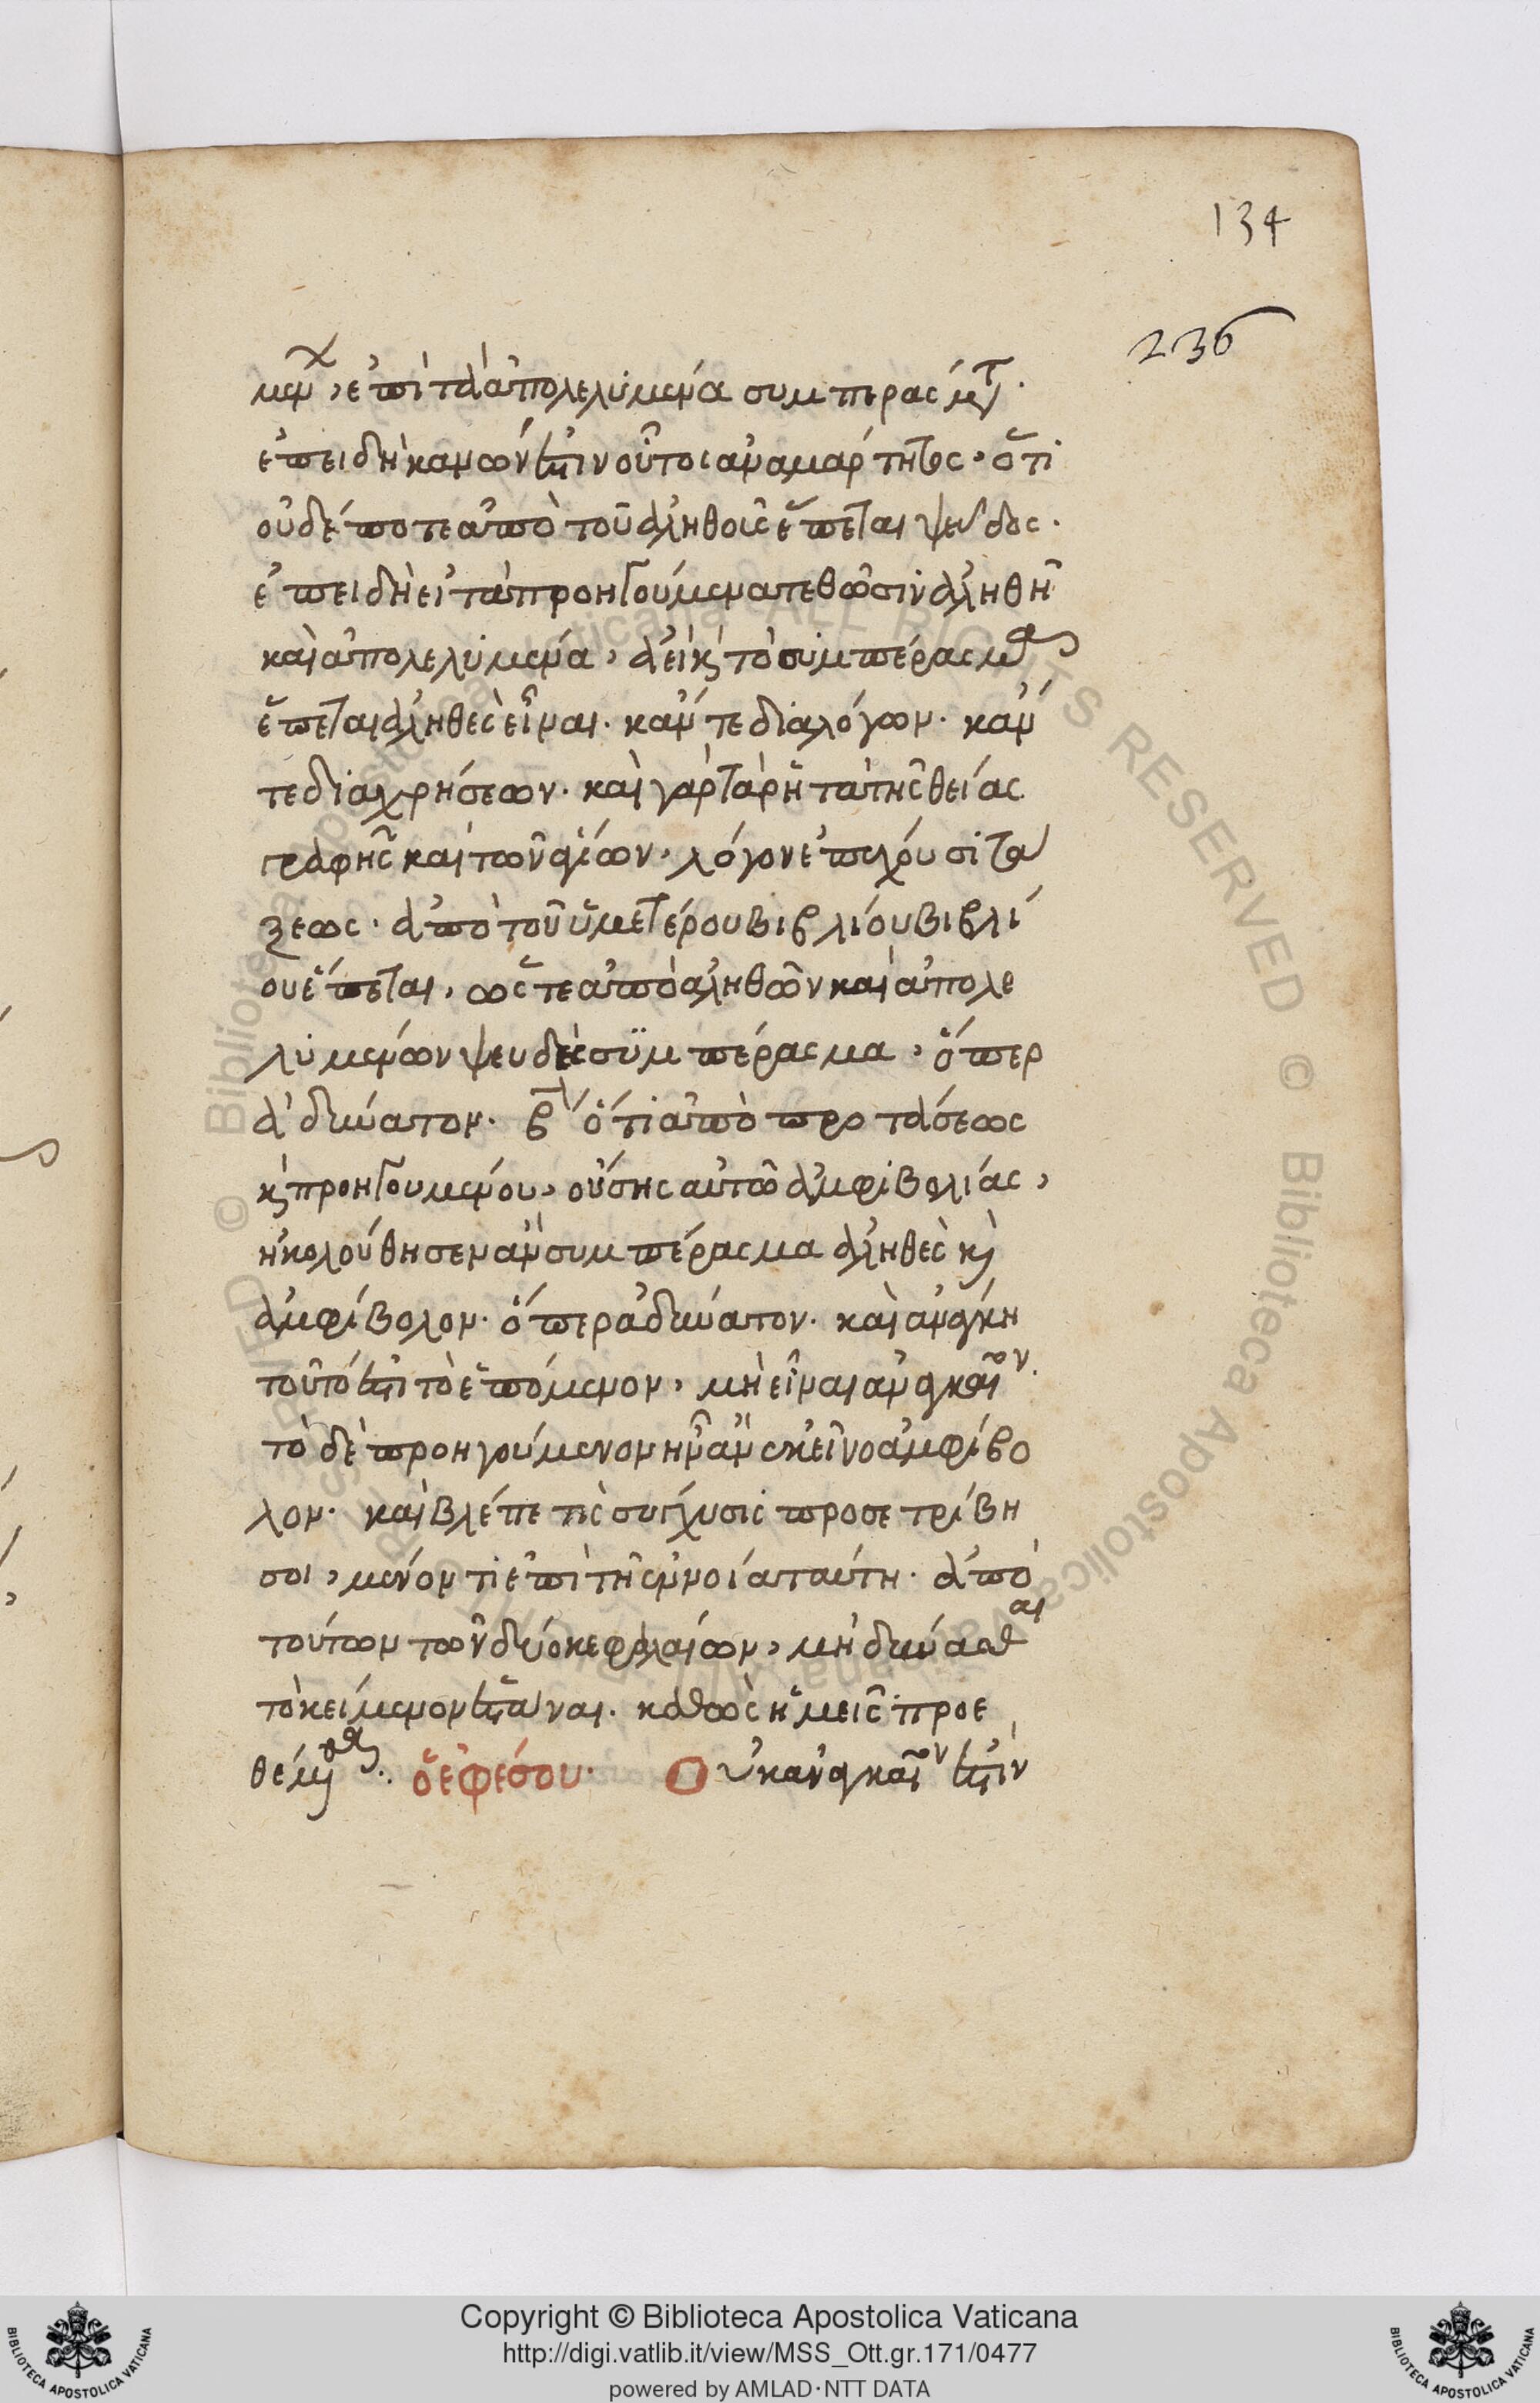 134
236
μεν, ἐπὶ τὰ ἀπολελυμένα συμπεράσματα.
ἐπειδὴ κανών ἐστιν οὗτος ἀναμάρτητος. ὅτι
οὐδέποτε ἀπὸ τοῦ ἀληθοῦς ἕπεται ψεῦδος.
ἐπειδὴ εἰ τὰ προηγούμενα τεθῶσιν ἀληθῆ
καὶ ἀπολελυμένα, ἀεὶ καὶ τὸ συμπέρασμα
ἕπεται ἀληθὲς εἶναι. κἄν τε διαλόγων. κἄν
τε διαχρήσεων. καὶ γὰρ τὰ ῥητὰ τῆς θείας
γραφῆς καὶ τῶν ἁγίων, λόγον ἐπέχουσι τά
ξεως. ἀπὸ τοῦ ὑμετέρου βιβλίου βιβλί
ου ἕπεται, ὥστε ἀπὸ ἀληθῶν καὶ ἀπολε
λυμένων ψευδὲς συμπέρασμα, ὅπερ
ἀδύνατον. β ὅτι ἀπὸ προτάσεως
καὶ προηγουμένου, οὔσης αὐτῶ ἀμφιβολίας,
ἠκολούθησεν ἂν συμπέρασμα ἀληθὲς καὶ
ἀμφίβολον. ὅπερ ἀδύνατον. καὶ ἀνάγκη
τοῦτό ἐστι τὸ ἑπόμενον, μὴ εἶναι ἀναγκαῖον.
τὸ δὲ προηγούμενον ἦν ἂν ἐκεῖνο ἀμφίβο
λον. καὶ βλέπε τίς σύγχυσις προσετρίβη
σοι, μένοντι ἐπὶ τῆ ἐννοία ταύτη. ἀπὸ
τούτων τῶν δύο κεφαλαίων, μὴ δύνασθαι
τὸ κείμενον εἶναι. καθὼς ἡμεῖς προε
θέμεθα. ὁ ἐφέσου. Οὐκ ἀναγκαῖον ἐστὶν
Copyright © Biblioteca Apostolica Vaticana
http://digi.vatlib.it/view/MSS_Ott.gr.171/0477
powered by AMLAD·NTT DATA